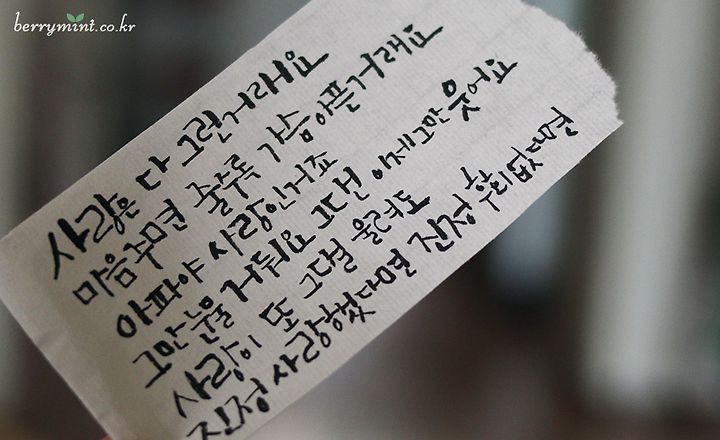 berrymint.co.kr
사랑은 다 그런거래요
마음주면 줄수록 가슴아픈거래요
아파야 사랑인거죠
그만 눈물 거둬요 그댄 이제그만 웃어요
사랑이 또 그댈 울려도
진정 사랑했다면 진정 후회없다면